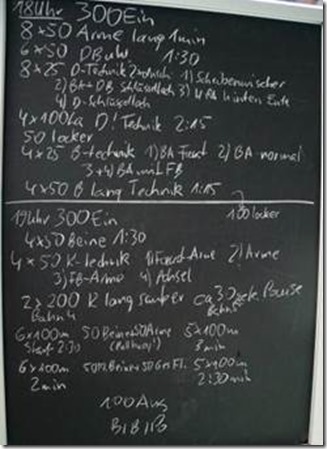 18Uhr 300Ein
8x50 Arme lang 1min
6x50 DBuW 1:30
8x25 D-Technik 1) Scheibenwischer
2) BA+DB Schlüsselloch 3) hinten Ente
4) D-Schlüsselloch
4x100 D! Technik 2:15
50 locker
4x25 B-technik 1) BA Faust 2) BA normal
3+4) BA mit FB
4x50 B lang Technik 1:15
100 locker
19Uhr 300Ein
4x50 Beine 1:30
4x50 K-technik 1) Faust-Arme 2) Arme
3) FB-Armo 4) Achsel
2x200 K lang sauber ca 30sek Pause
Bahn 4 Bahn 5
6x100m 50Beine 50Arme 5x100m
Start 2:30 (Pullbuoy) 3min
6x100m 50m Beine 50 Ges Fl. 5x100m
2min 2:30min
100 Aus